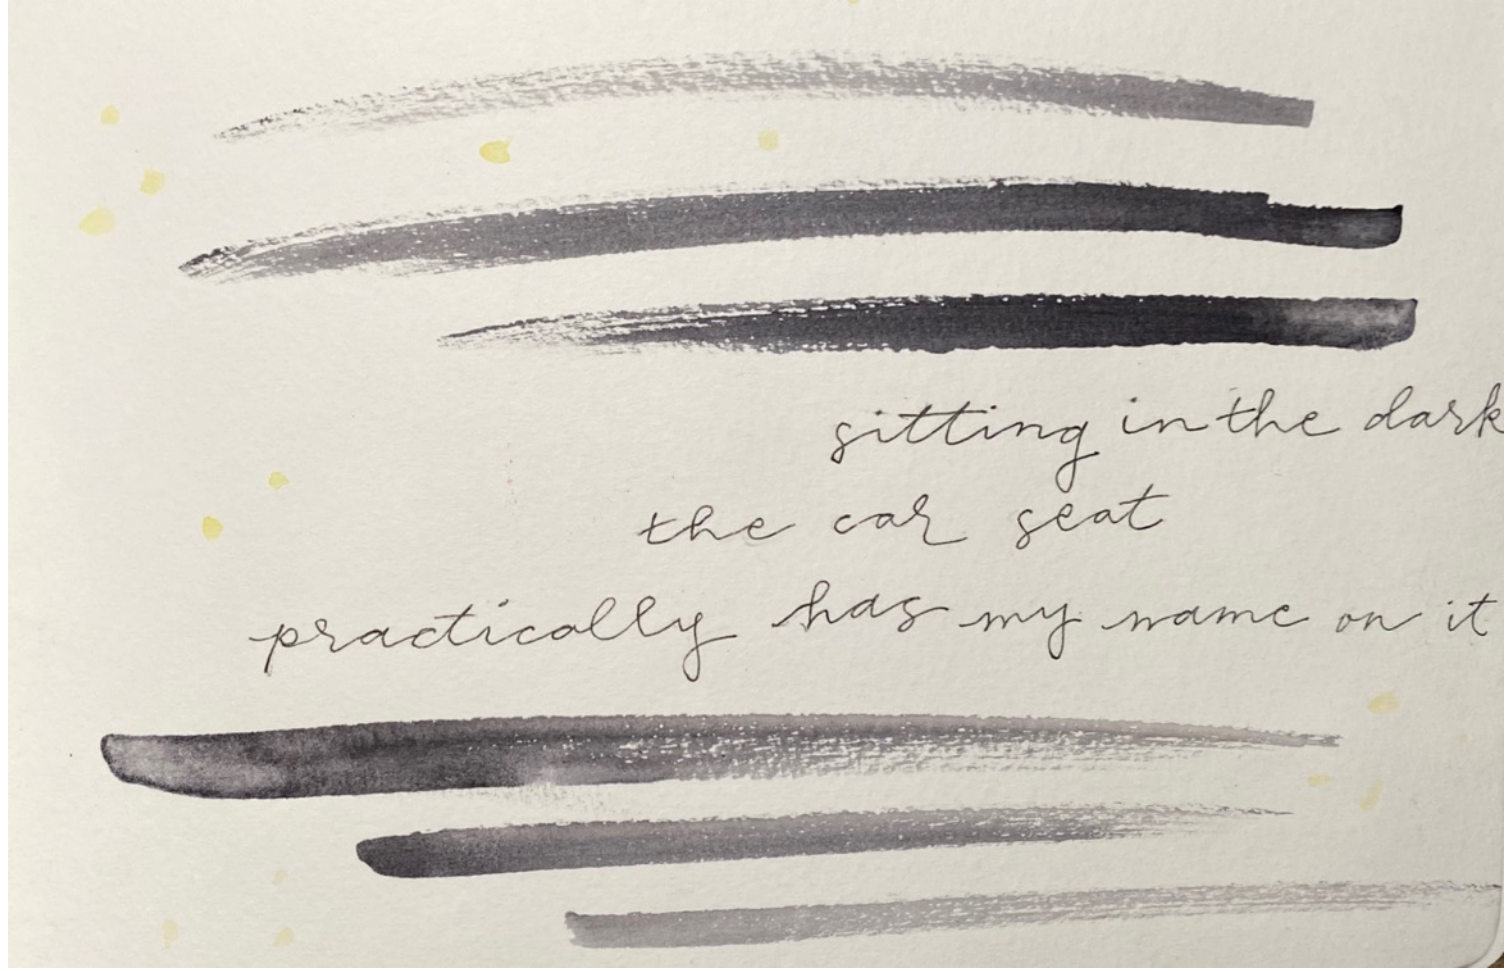 sitting in the dark
the car seat
practically has my name on it